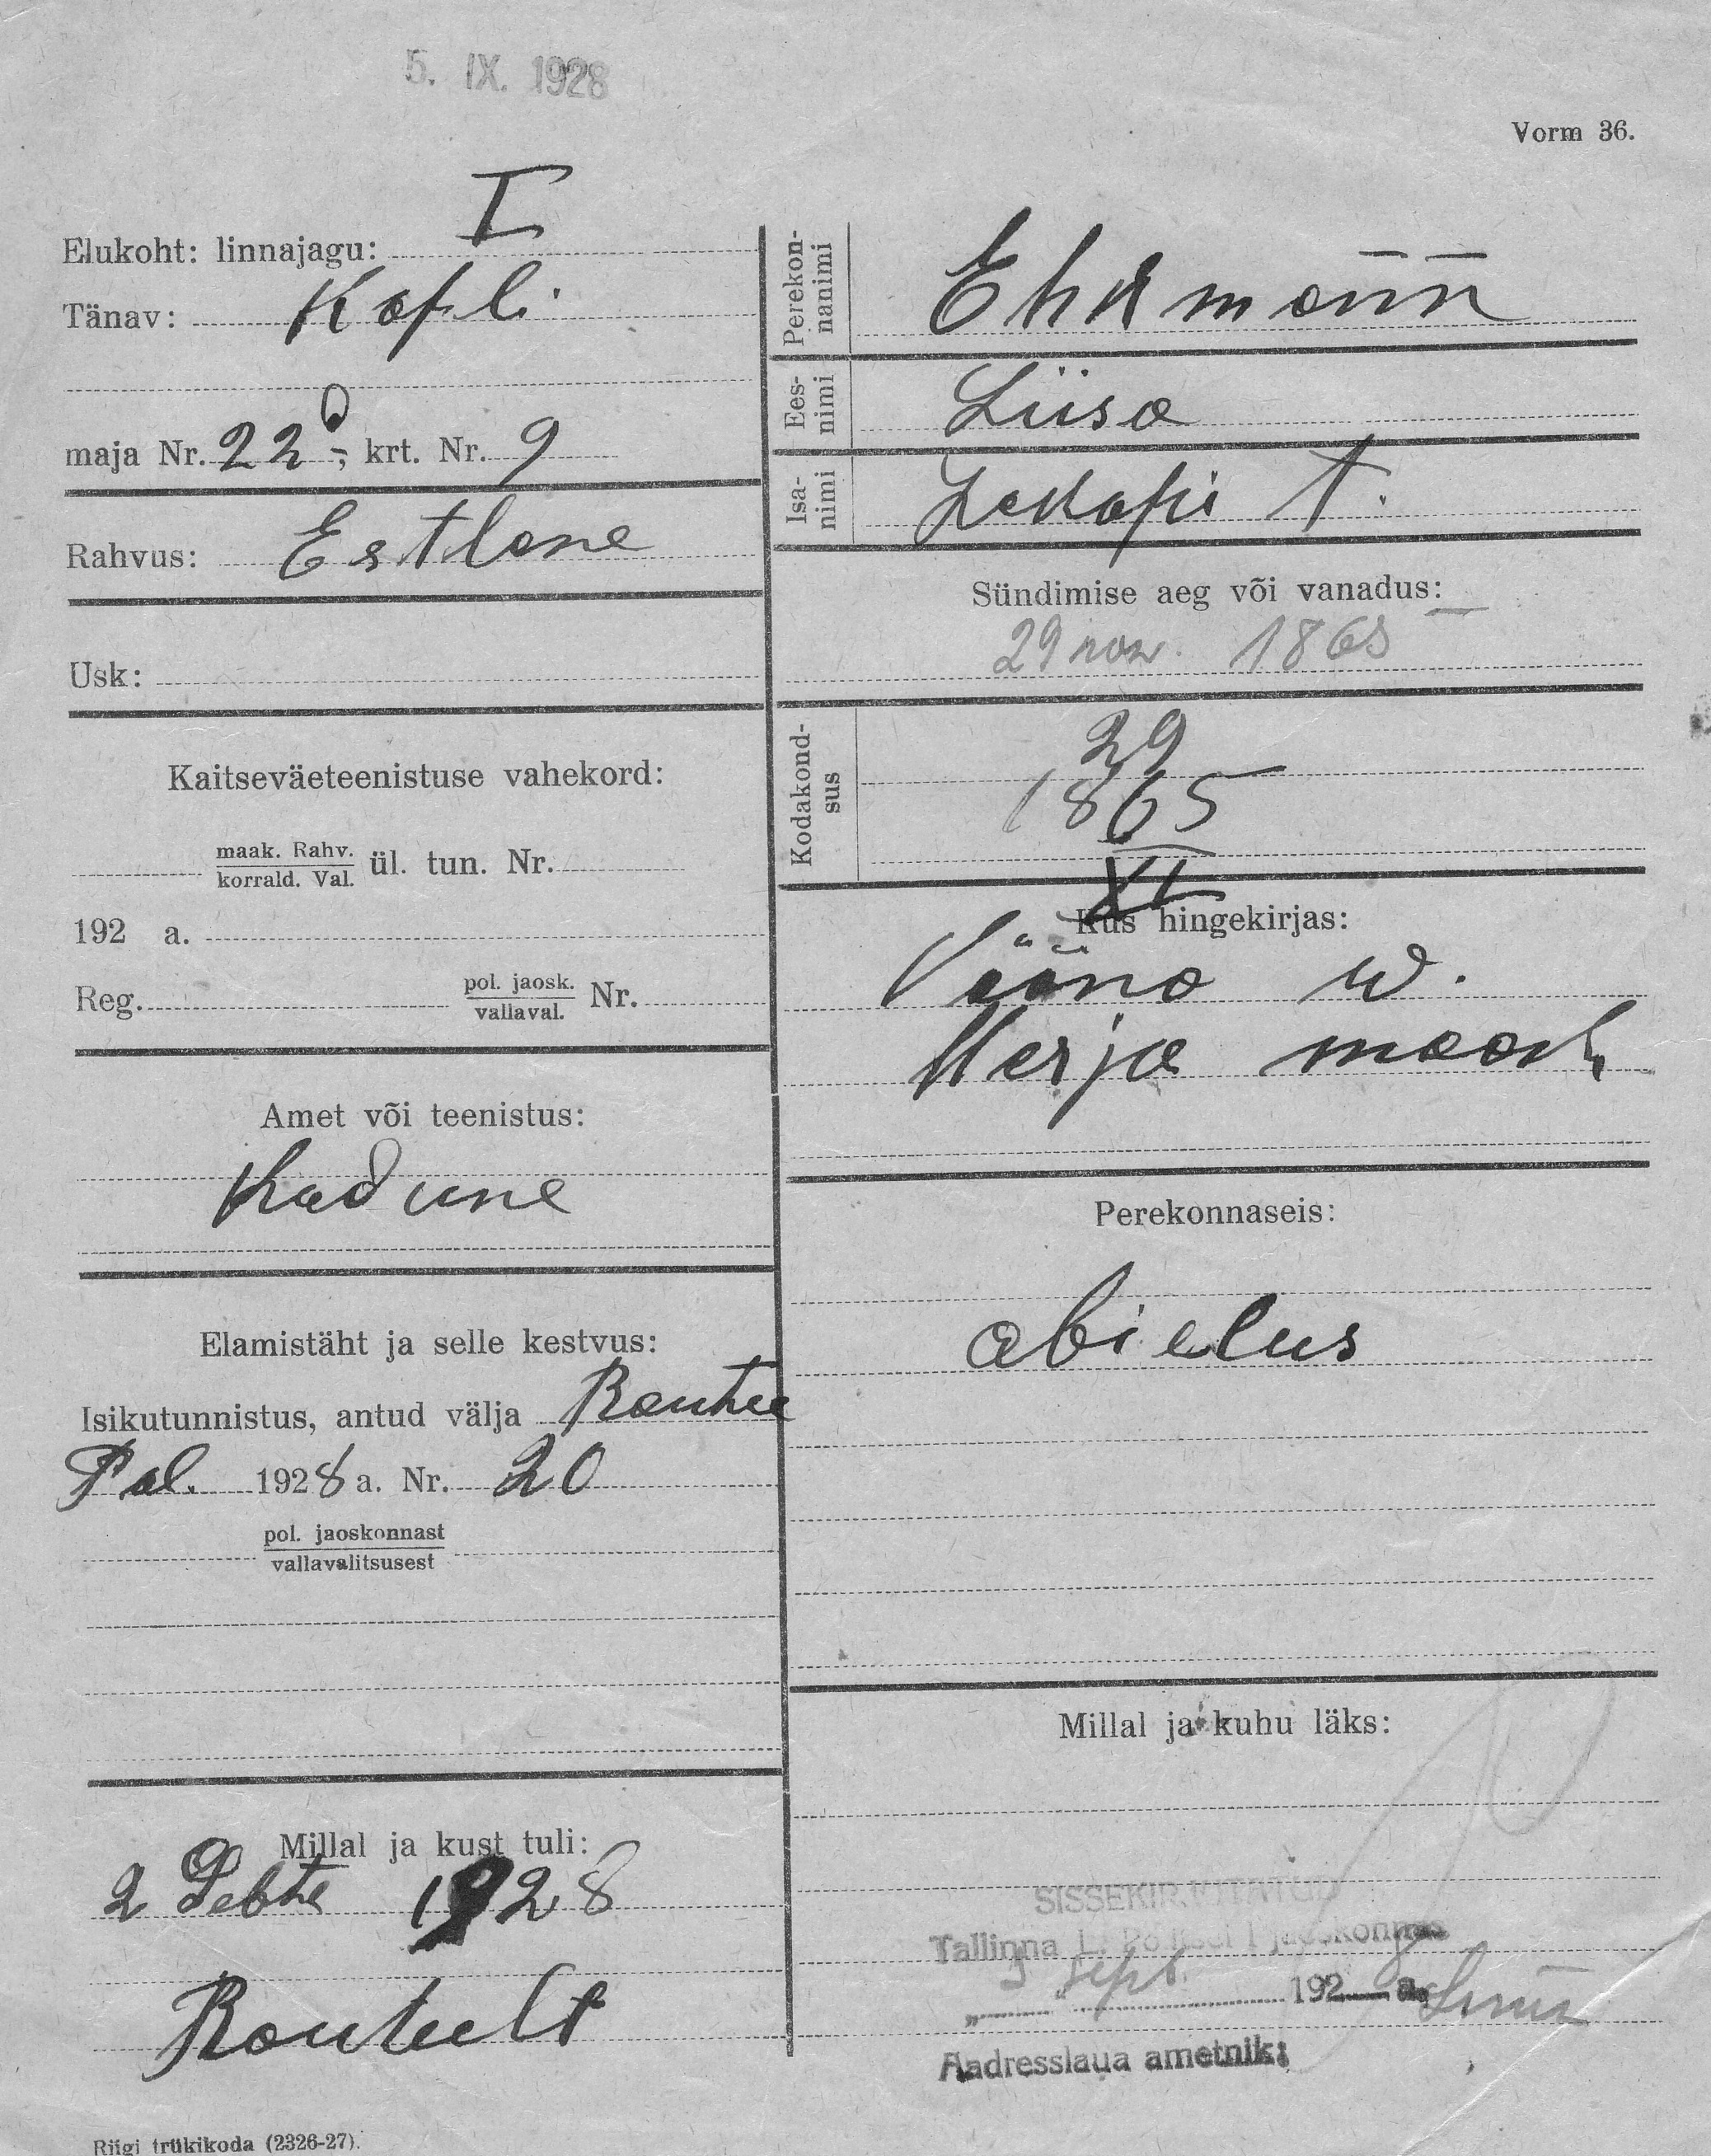 5. IX. 1928
Vorm 36.
Elukoht: linnajagu: I
Tänav: Kopli
maja Nr. 22; krt. Nr. 9
Rahvus: Estlane
Usk:
Kaitseväeteenistuse vahekord:
maak. Rahv.
korrald. Val. ül. tun. Nr.
192 a.
Reg. pol. jaosk.
vallaval. Nr.
Amet või teenistus:
Elamistäht ja selle kestvus:
Isikutunnistus, antud välja Rautee
Pol. 1928 a. Nr. 20
pol. jaoskonnast
vallavalitsusest
Millal ja kust tuli:
2 Sebtr 1928
Riigi trükikoda (2326-27).
Perekon-
nanimi
Ehrmann
Ees-
nimi
Liisa
Isa-
nimi
Jakopi t.
Sündimise aeg või vanadus:
29 nov. 1865
Kodakond-
sus
29
1865
XI
Kus hingekirjas:
Vääna w.
Harju maak.
Perekonnaseis:
abielus
Millal ja kuhu läks:
SISSEKIRJUTATUD
Tallinna L. Politsei I jaoskonnas
"5" sept. 1928 a.
Aadresslaua ametnik: